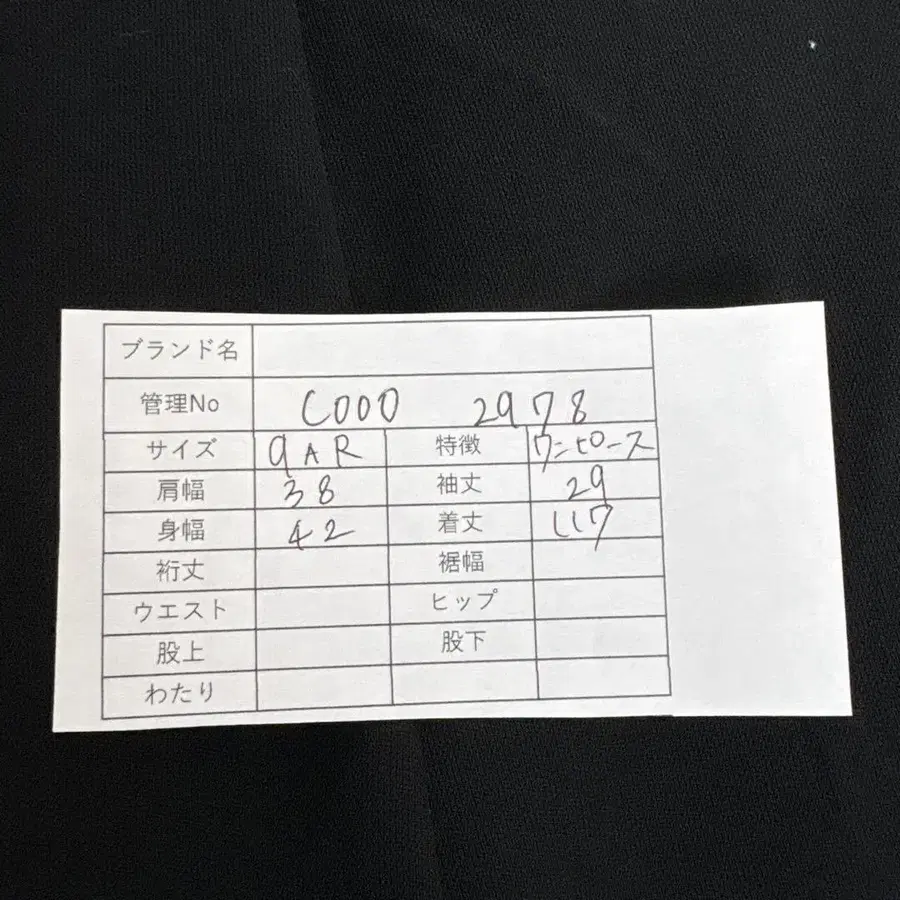 ブランド名
管理No C000 2978
サイズ 9AR 特徴 ワンピース
肩幅 38 袖丈 29
身幅 42 着丈 117
裄丈 裾幅
ウエスト ヒップ
股上 股下
わたり